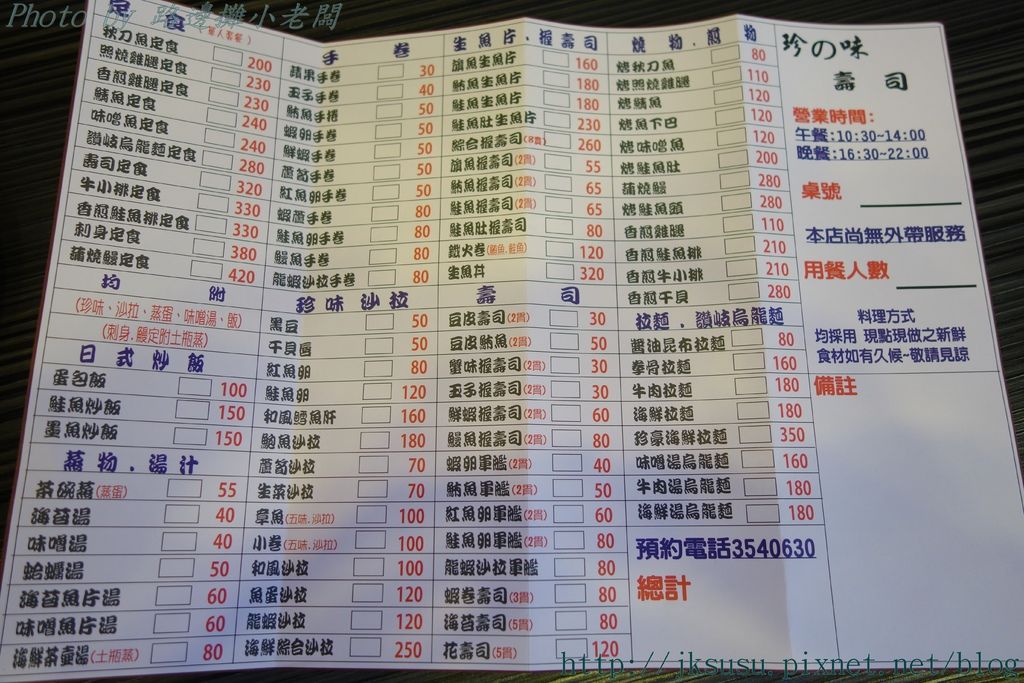 Photo by 路邊攤小老闆
定食(單人套餐)
秋刀魚定食 200
照燒雞腿定食 230
香煎雞腿定食 230
鯖魚定食 240
味噌魚定食 240
讚岐烏龍麵定食 280
壽司定食 320
牛小排定食 330
香煎鮭魚排定食 330
刺身定食 380
蒲燒鰻定食 420
均附
(珍味、沙拉、蒸蛋、味噌湯、飯)
(刺身.鰻定附土瓶蒸)
日式炒飯
蛋包飯 100
鮭魚炒飯 150
墨魚炒飯 150
蒸物.湯汁
茶碗蒸(蒸蛋) 55
海苔湯 40
味噌湯 40
蛤蠣湯 50
海苔魚片湯 60
味噌魚片湯 60
海鮮茶壺湯(土瓶蒸) 80
手卷
蘋果手卷 30
玉子手卷 40
鮪魚手捲 50
蝦卵手卷 50
鮮蝦手卷 50
蘆筍手卷 50
紅魚卵手卷 50
蝦蘆手卷 80
鮭魚卵手卷 80
鰻魚手卷 80
龍蝦沙拉手卷 80
珍味沙拉
黑豆 50
干貝唇 50
紅魚卵 80
鮭魚卵 120
和風鱈魚肝 160
鮑魚沙拉 180
蘆筍沙拉 70
生菜沙拉 70
章魚(五味.沙拉) 100
小卷(五味.沙拉) 100
和風沙拉 100
魚蛋沙拉 120
龍蝦沙拉 120
海鮮綜合沙拉 250
生魚片.握壽司
旗魚生魚片 160
鮪魚生魚片 180
鮭魚生魚片 180
鮭魚肚生魚片 230
綜合握壽司(8貫) 260
旗魚握壽司(2貫) 55
鮪魚握壽司(2貫) 65
鮭魚握壽司(2貫) 65
鮭魚肚握壽司 80
鐵火卷(鮪魚.鮭魚) 120
生魚丼 320
壽司
豆皮壽司(2貫) 30
豆皮鮪魚(2貫) 50
蟹味握壽司(2貫) 30
玉子握壽司(2貫) 30
鮮蝦握壽司(2貫) 60
鰻魚握壽司(2貫) 80
蝦卵軍艦(2貫) 40
鮪魚軍艦(2貫) 50
紅魚卵軍艦(2貫) 60
鮭魚卵軍艦(2貫) 80
龍蝦沙拉軍艦 80
蝦卷壽司(3貫) 80
海苔壽司(5貫) 80
花壽司(5貫) 120
燒物.煎物
烤秋刀魚 80
烤照燒雞腿 110
烤鯖魚 120
烤魚下巴 120
烤味噌魚 120
烤鮭魚肚 200
蒲燒鰻 280
烤鮭魚頭 280
香煎雞腿 110
香煎鮭魚排 210
香煎牛小排 210
香煎干貝 280
拉麵.讚岐烏龍麵
醬油昆布拉麵 80
拳骨拉麵 160
牛肉拉麵 180
海鮮拉麵 180
珍豪海鮮拉麵 350
味噌湯烏龍麵 160
牛肉湯烏龍麵 180
海鮮湯烏龍麵 180
預約電話3540630
總計
珍の味
壽司
營業時間:
午餐:10:30~14:00
晚餐:16:30~22:00
桌號
本店尚無外帶服務
用餐人數
料理方式
均採用 現點現做之新鮮
食材如有久候~敬請見諒
備註
http://jksusu.pixnet.net/blog